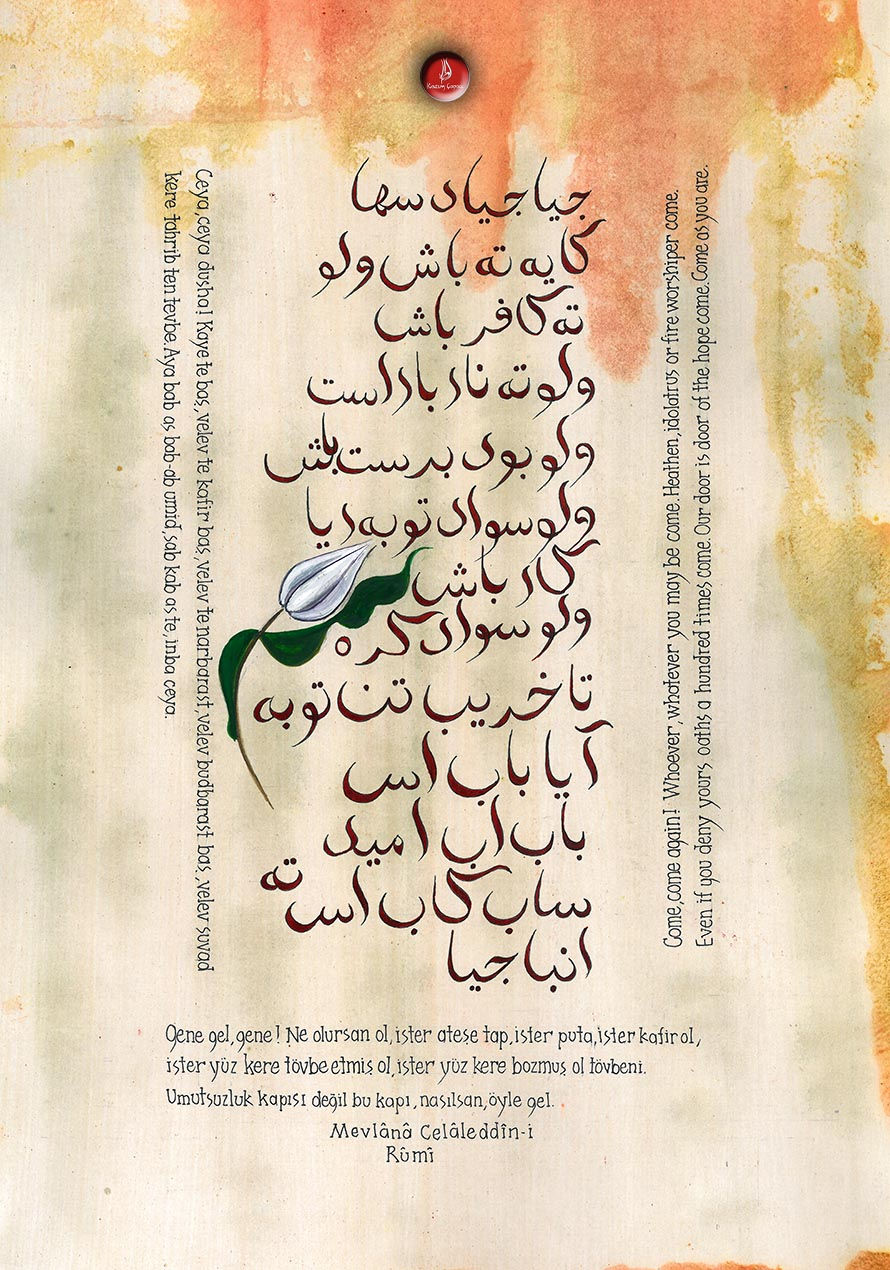 جيا جيا د سها
كايه ته باش ولو
ته كافر باش
ولو ته نار باراست
ولو بود برست باش
ولو سواد توبه ايا
كار باش
ولو سواد كره
تا خريب تن توبه
آيا باب اس
باب اب اميد
ساب كاب اس ته
انبا جيا
Ceya, ceya dusha! Kaye te baş, velev te kafir baş, velev te narbarast, velev budbarast baş, velev suvad
kere tahrib ten tevbe. Aya bab as bab-ab umid, sab kab as te, inba ceya.
Come, come again! Whoever, whatever you may be come. Heathen, idolatrus or fire worshiper come.
Even if you deny yours oaths a hundred times come. Our door is door of the hope come. Come as you are.
Gene gel, gene! Ne olursan ol, ister atese tap, ister puta, ister kafir ol,
ister yüz kere tövbe etmis ol, ister yüz kere bozmus ol tövbeni.
Umutsuzluk kapısı değil bu kapı, nasılsan, öyle gel.
Mevlânâ Celâleddîn-i
Rûmî